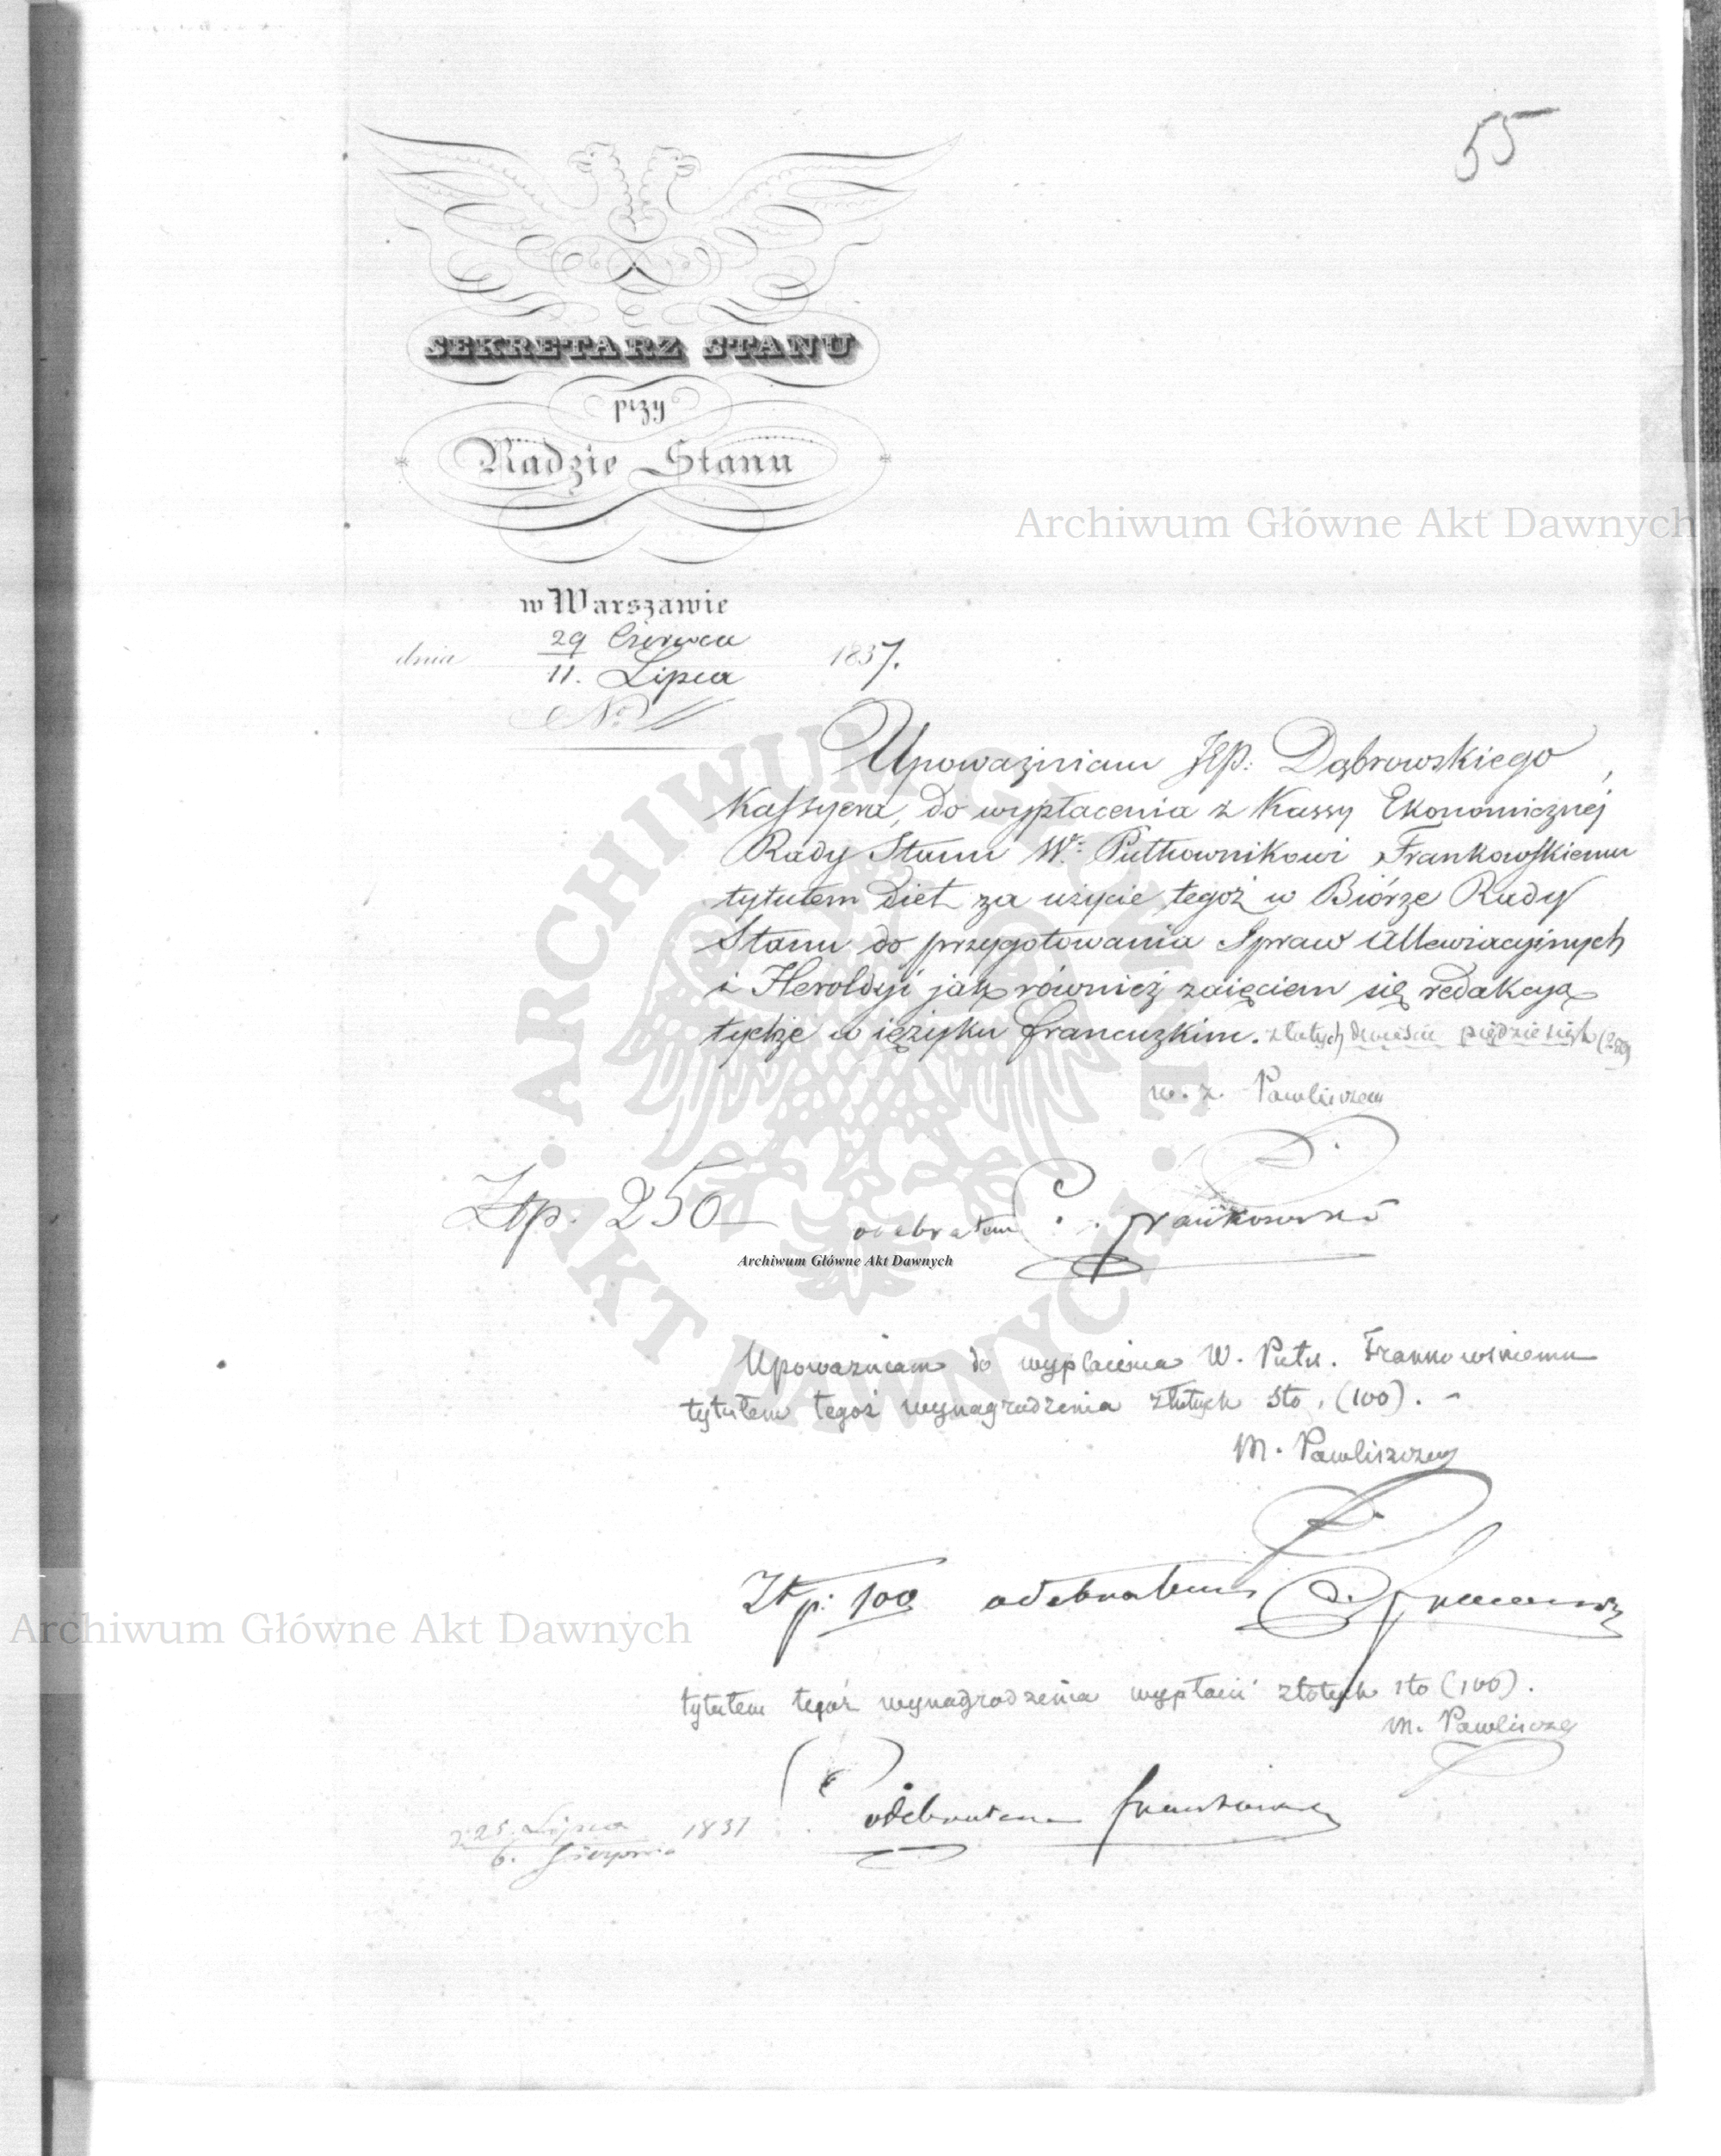 55
SEKRETARZ STANU
przy
Radzie Stanu
Archiwum Główne Akt Dawnych
w Warszawie
dnia 29 Czerwca 1837.
11. Lipca
No
Upoważniam JP. Dąbrowskiego
Kassyera, do wypłacenia z Kassy Ekonomicznej
Rady Stanu W. Pułkownikowi Frankowskiemu
tytułem diet za użycie tegoż w Biórze Rady
Stanu do przygotowania Spraw Allewiacyinych
i Heroldyi jak również zaięciem się redakcyą
tychże w ięzyku francuzkim. złotych dwieście pięćdziesiąt (250)
w. z. Pawliszczew
Złp. 250 odebrałem Frankowski
Archiwum Główne Akt Dawnych
Upoważniam do wypłacenia W. Pułk. Frankowskiemu
tytułem tegoż wynagrodzenia złotych sto, (100). -
M. Pawliszczew
Złp: 100 odebrałem
Archiwum Główne Akt Dawnych
tytułem tegoż wynagrodzenia wypłacić złotych sto (100).
M. Pawliszczew
odebrałem Frankowski
d. 25. Lipca 1837
6. Sierpnia
ARCHIWUM GŁÓWNE AKT DAWNYCH